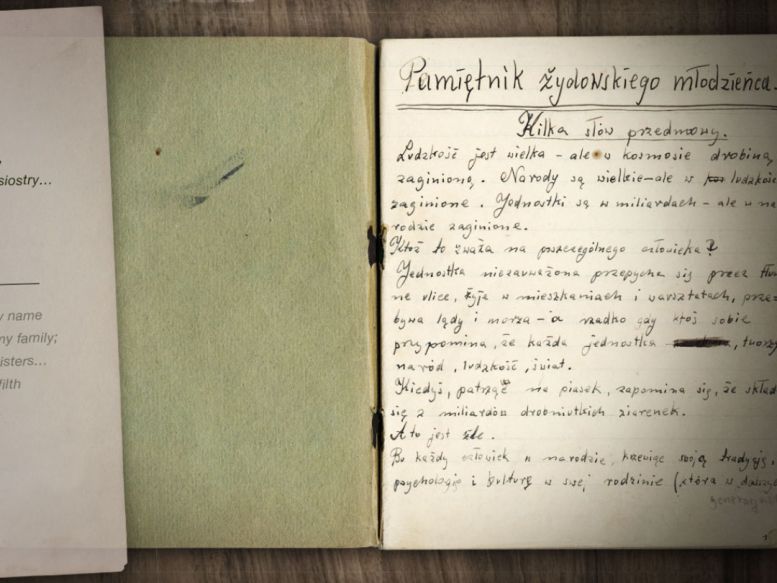 siostry...
y name
ny family;
isters...
filth
Pamiętnik żydowskiego młodzieńca.
Kilka słów przedmowy.
Ludzkość jest wielka - ale w kosmosie drobiną
zaginioną. Narody są wielkie - ale w ludzkości
zaginione. Jednostki są w miliardach - ale w na
rodzie zaginione.
Któż to zważa na poszczególnego człowieka?
Jednostka niezauważona przepycha się przez tłum
ne ulice, żyje w mieszkaniach i warsztatach, prze
bywa lądy i morza - a rzadko gdy ktoś sobie
przypomina, że każda jednostka tworzy
naród, ludzkość, świat.
Kiedyś, patrząc na piasek, zapomina się, że skład
się z miliardów drobniutkich ziarenek.
A to jest źle.
Bo każdy człowiek w narodzie, krzewiąc swoją tradycję,
psychologię i kulturę w swej rodzinie (która w dalszy